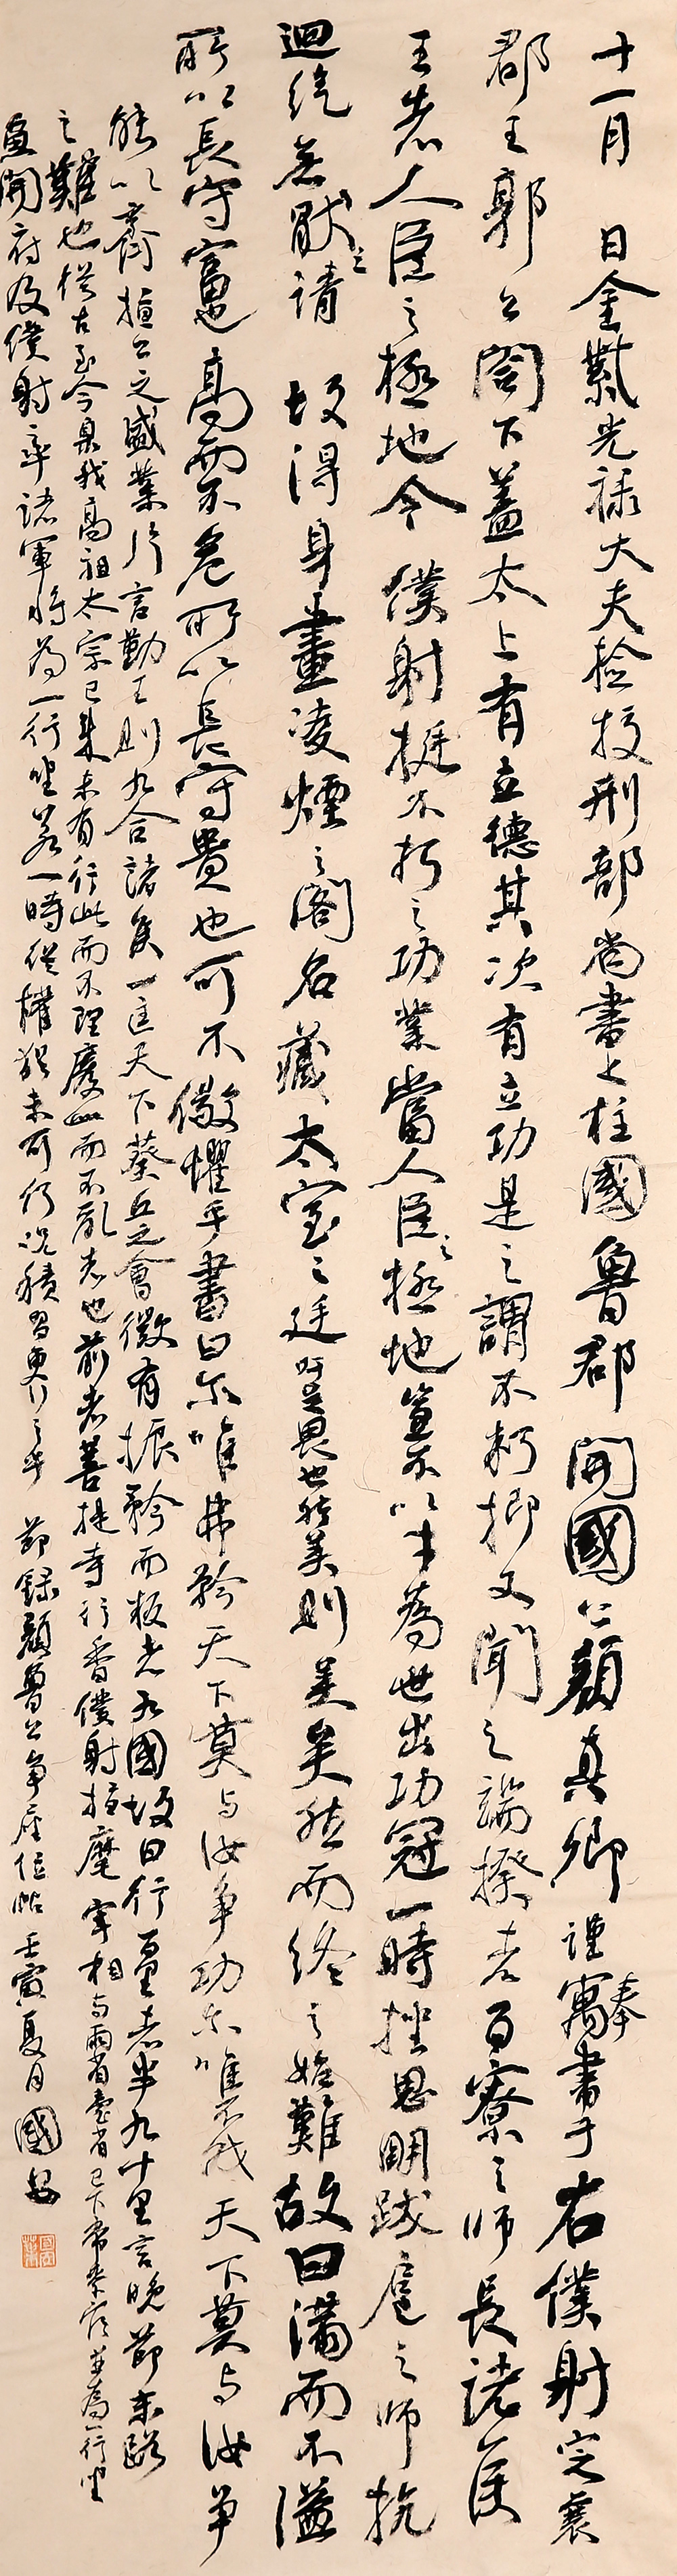 十一月 日金紫光禄大夫检校刑部尚書上柱國魯郡開國公顏真卿謹奉寓書于右僕射定襄
郡王郭公閤下蓋太上有立德其次有立功是之謂不朽抑又聞之端揆者百寮之師長諸侯
王者人臣之極地今僕射挺不朽之功業當人臣之極地豈不以才為世出功冠一時挫思明跋扈之師抗
迴紇無猒之請故得身畫凌煙之閣名藏太室之廷吁足畏也然美則美矣然而終之始難故曰滿而不溢
所以長守富也高而不危所以長守貴也可不儆懼乎書曰尔唯弗矜天下莫與汝争功尔唯不伐天下莫與汝争
能以齊桓公之盛業片言勤王則九合諸侯一匡天下葵丘之會微有振矜而叛者九國故曰行百里者半九十里言晚節末路
之難也從古至今泉我高祖太宗已來未有行此而不理廢此而不亂者也前者菩提寺行香僕射指麾宰相與兩省臺省已下常参官並為一行坐
魚開府及僕射率諸軍將為一行坐若一時從權猶未可何况積習更行之乎 節録顏魯公争座位帖 壬寅夏月 國